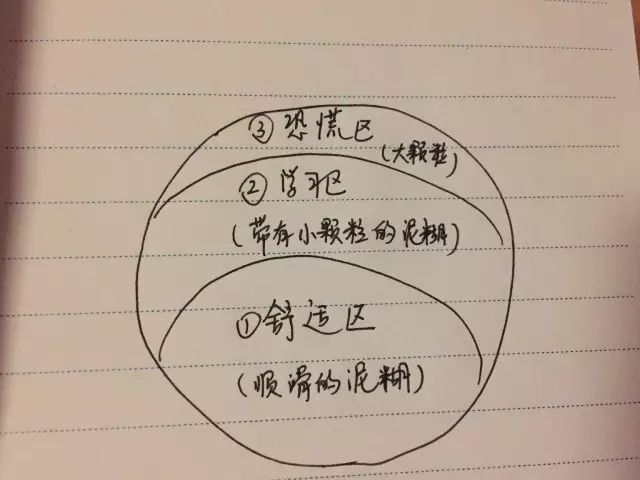 ③恐慌区
(大颗粒)
②学习区
(带有小颗粒的泥糊)
①舒适区
(顺滑的泥糊)